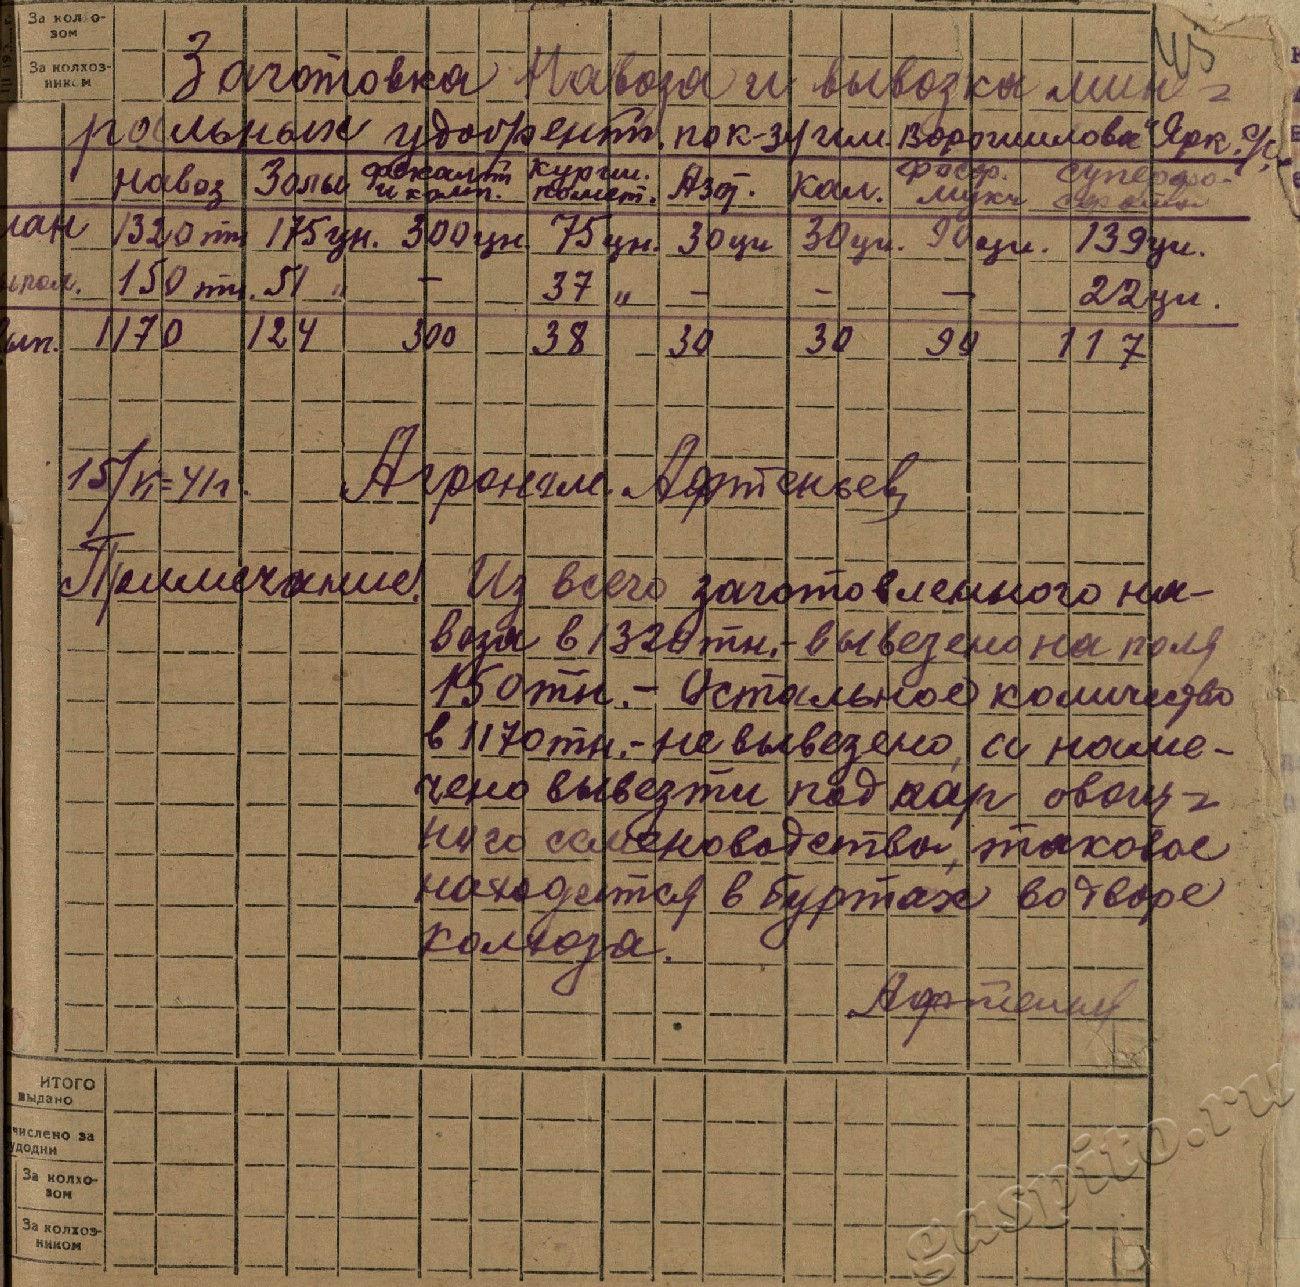 За колхо-
зом
За колхоз-
ником
45
Заготовка Навоза и вывозка мин-
ральных удобрен. по к-зу им. Ворошилова" Ярк. Р/с.
навоз Золы Фекалит Курин. Азот. Кал. Фосф. Суперфо-
и комп. помет. мука сфатов
лан 1320 тн 175 цн. 300 цн. 75 цн. 30 цн 30 цн. 90 цн. 139 цн.
ыпол. 150 тн. 51 " – 37 " – – – 22 цн.
ып. 1170 124 300 38 30 30 90 117
15/ -41г. Агроном. Афтеньев
Примечание! Из всего заготовленного на-
воза в 1320 тн.- вывезено на поля
150 тн. – Остальное количество
в 1170 тн.- не вывезено, и наме-
чено вывезти под пар овощ-
ного семеноводства, таковое
находится в буртах во дворе
колхоза.
Афтеньев
ИТОГО
выдано
числено за
удодни
За колхо-
зом
За колхоз-
ником
gaspito.ru